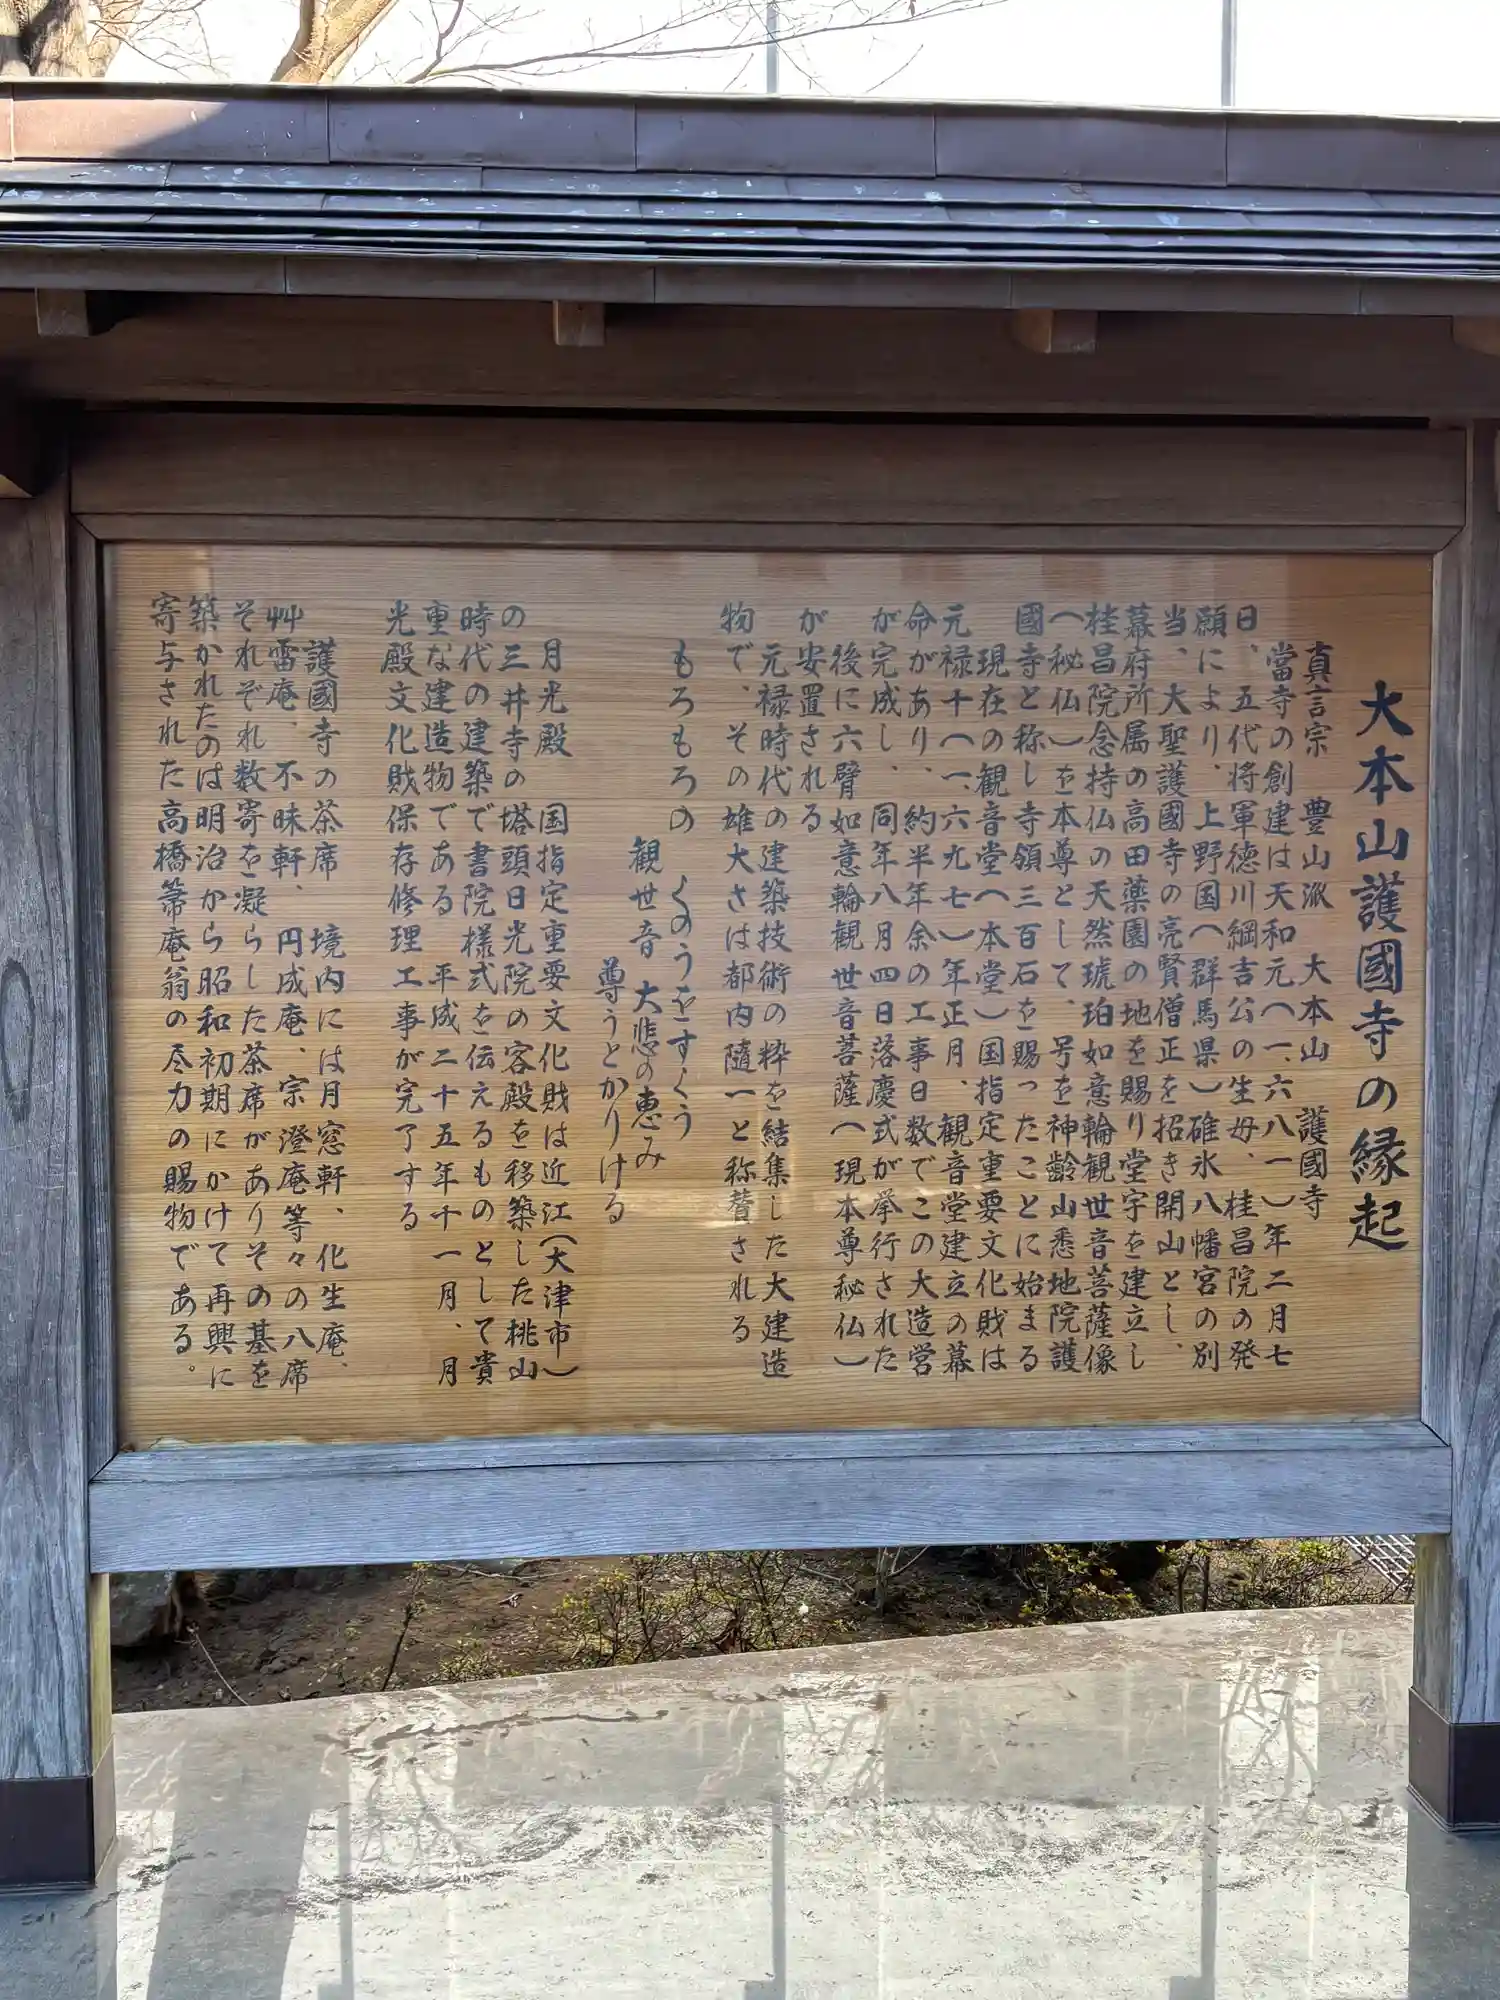 大本山護國寺の縁起
真言宗　豊山派　大本山　護國寺
當寺の創建は天和元（一、六八一）年二月七
日、五代将軍徳川綱吉公の生母、桂昌院の発
願により、上野国（群馬県）碓氷八幡宮の別
当、大聖護國寺の亮賢僧正を招き開山とし、
幕府所属の高田薬園の地を賜り堂宇を建立し
桂昌院念持仏の天然琥珀如意輪観世音菩薩像
（秘仏）を本尊として、号を神齢山悉地院護
國寺と称し寺領三百石を賜ったことに始まる
現在の観音堂（本堂）国指定重要文化財は
元禄十（一、六九七）年正月、観音堂建立の幕
命があり、約半年余の工事日数でこの大造営
が完成し、同年八月四日落慶式が挙行された
後に六臂如意輪観世音菩薩（現本尊秘仏）
が安置される
元禄時代の建築技術の粋を結集した大建造
物で、その雄大さは都内随一と称賛される
もろもろの　くのうをすくう
観世音　大悲の恵み
尊うとかりける
月光殿　国指定重要文化財は近江（大津市）
の三井寺の塔頭日光院の客殿を移築した桃山
時代の建築で書院様式を伝えるものとして貴
重な建造物である　平成二十五年十一月、月
光殿文化財保存修理工事が完了する
護國寺の茶席　境内には月窓軒、化生庵、
艸雷庵、不昧軒、円成庵、宗澄庵等々の八席
それぞれ数寄を凝らした茶席がありその基を
築かれたのは明治から昭和初期にかけて再興に
寄与された高橋箒庵翁の尽力の賜物である。